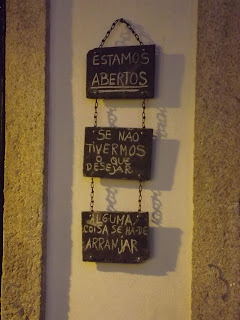 ESTAMOS
ABERTOS
SE NÃO
TIVERMOS
O QUE
DESEJAR
ALGUMA
COISA SE HÁ-DE
ARRANJAR